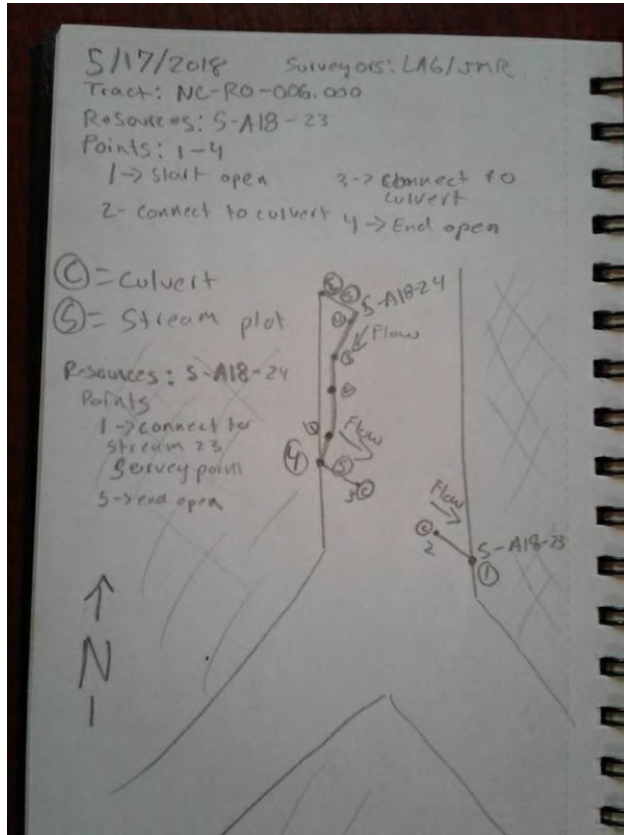 5/17/2018 Surveyors: LAG/JMR
Tract: NC-RO-006.000
Resources: S-A18-23
Points: 1-4
1-> Start open
3-> Connect to culvert
2- connect to culvert
4-> End open
C = Culvert
S = Stream plot
Resources: S-A18-24
Points
1->connect to
stream 23
Servey point
5->end open
S-A18-24
Flow
Flow
4
S
3 C
Flow
C
2
S-A18-23
1
N